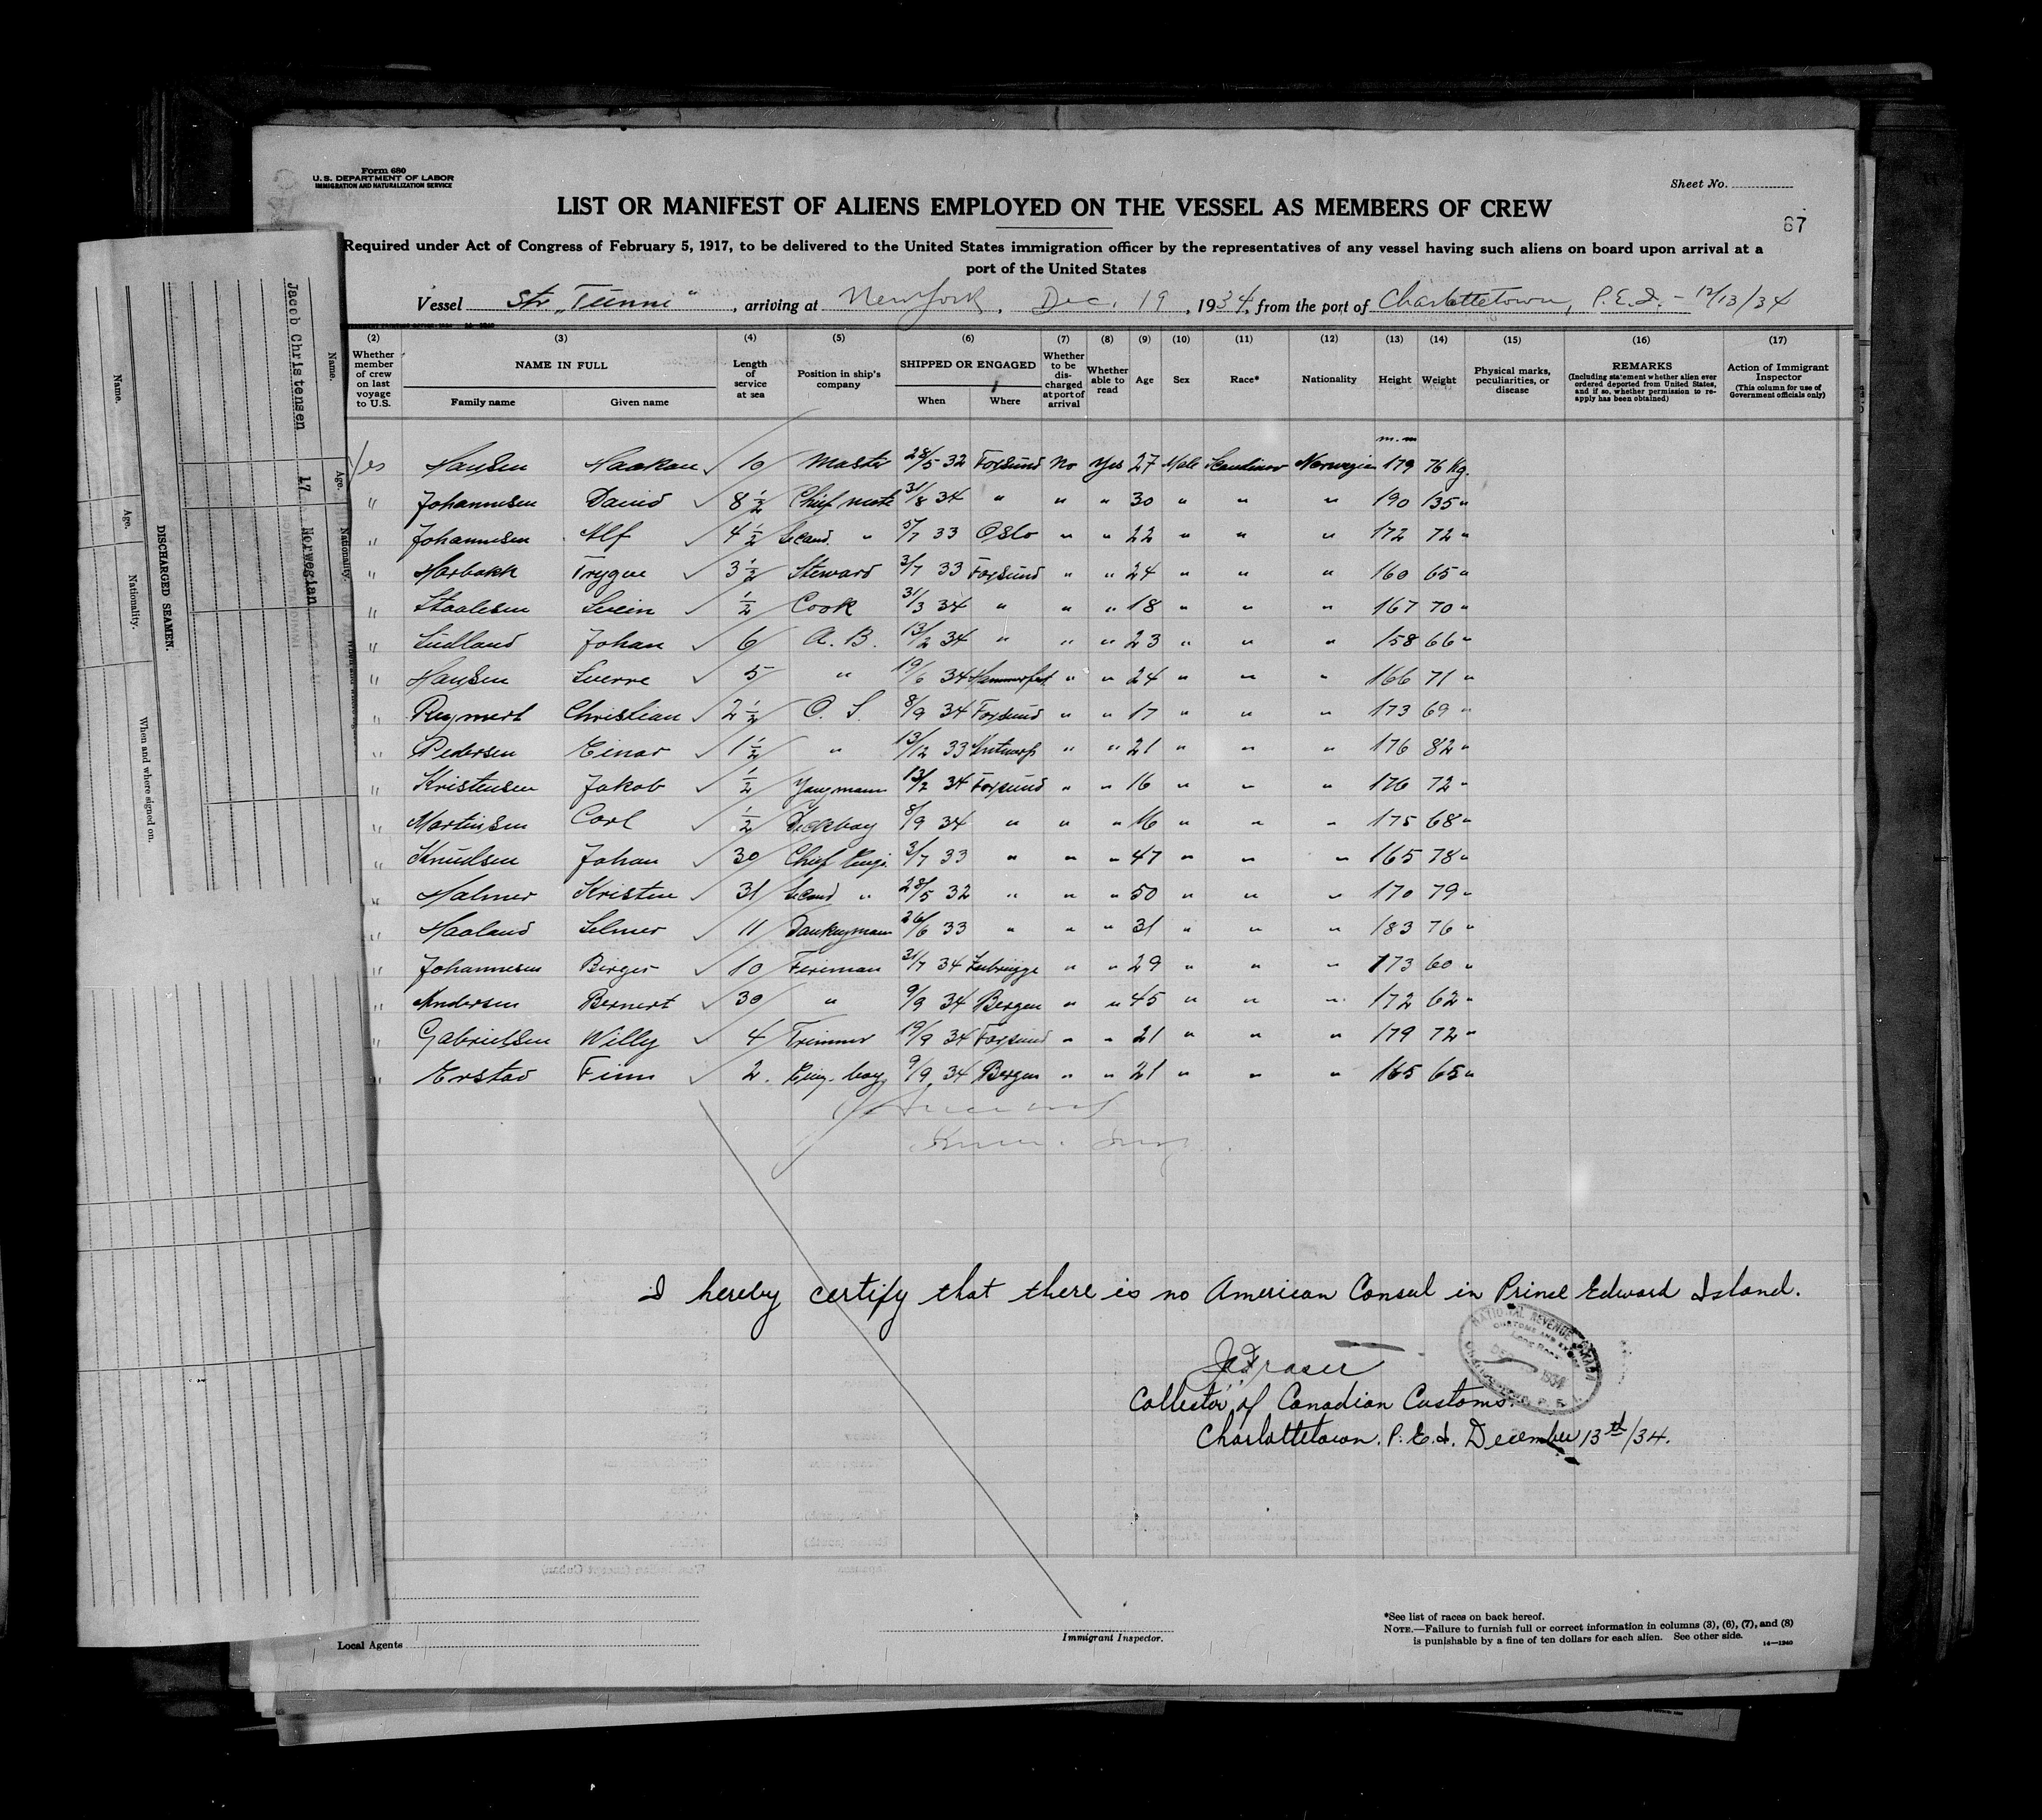 Form 680
U. S. DEPARTMENT OF LABOR
IMMIGRATION AND NATURALIZATION SERVICE
Sheet No.
LIST OR MANIFEST OF ALIENS EMPLOYED ON THE VESSEL AS MEMBERS OF CREW
67
Required under Act of Congress of February 5, 1917, to be delivered to the United States immigration officer by the representatives of any vessel having such aliens on board upon arrival at a
port of the United States
Vessel Str. , arriving at New York, Dec. 19, 1934, from the port of Charlottetown, P.E.I. - 12/13/34
(2) (3) (4) (5) (6) (7) (8) (9) (10) (11) (12) (13) (14) (15) (16) (17)
Whether member of crew on last voyage to U.S. NAME IN FULL Family name Given name Length of service at sea Position in ship's company SHIPPED OR ENGAGED When Where Whether to be discharged at port of arrival Whether able to read Age Sex Race* Nationality Height Weight Physical marks, peculiarities, or disease REMARKS (Including statement whether alien ever ordered deported from United States, and if so, whether permission to reapply has been obtained) Action of Immigrant Inspector (This column for use of Government officials only)
m.m
Yes Hansen Haakon 10 Master 28/5 32 Farsund No Yes 27 Male Scandinav Norwegian 179 76 Kg.
" Johannesen David 8 1/2 Chief mate 31/8 34 " " " 30 " " " 190 135 "
" Johannesen Alf 4 1/2 Second " 5/7 33 Oslo " " 22 " " " 172 72 "
" Harbakk Trygve 3 1/2 Steward 3/7 33 Farsund " " 24 " " " 160 65 "
" Staalesen Svein 1/2 Cook 31/3 34 " " " 18 " " " 167 70 "
" Sudland Johan 6 A. B. 13/2 34 " " " 23 " " " 158 66 "
" Hansen Sverre 5 " 19/6 34 Hammerfest " " 24 " " " 166 71 "
" Reymert Christian 2 1/2 O. S. 8/9 34 Farsund " " 17 " " " 173 69 "
" Pedersen Einar 1 1/2 " 13/12 33 Antwerp " " 21 " " " 176 82 "
" Kristensen Jakob 1/2 Yungmann 13/2 34 Farsund " " 16 " " " 176 72 "
" Martinsen Carl 1/2 Deckboy 8/9 34 " " " 16 " " " 175 68 "
" Knudsen Johan 30 Chief Engi. 3/7 33 " " " 47 " " " 165 78 "
" Halmer Kristen 31 Second " 28/5 32 " " " 50 " " " 170 79 "
" Haaland Selmer 11 Dankeymann 26/6 33 " " " 31 " " " 183 76 "
" Johannesen Birger 10 Fireman 31/7 34 Zeebrügge " " 29 " " " 173 60 "
" Andersen Bernert 30 " 9/9 34 Bergen " " 45 " " " 172 62 "
" Gabrielsen Willy 4 Trimmer 19/9 34 Farsund " " 21 " " " 179 72 "
" Erstad Finn 2 Eng. boy 9/9 34 Bergen " " 21 " " " 165 65 "
I hereby certify that there is no American Consul in Prince Edward Island.
Fraser
Collector of Canadian Customs.
Charlottetown. P.E.I. December 13th/34.
NATIONAL REVENUE CANADA
CUSTOMS AND EXCISE
LONG ROOM
DEC 1934
Local Agents
Immigrant Inspector.
*See list of races on back hereof.
NOTE.—Failure to furnish full or correct information in columns (3), (6), (7), and (8)
is punishable by a fine of ten dollars for each alien. See other side.
14—1240
DISCHARGED SEAMEN.
Name. Age. Nationality. When and where signed on.
Name. Age. Nationality.
Jacob Christensen 17 Norwegian